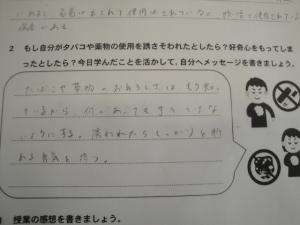 2 もし自分がタバコや薬物の使用を誘さそわれたとしたら?好奇心をもってしま
ったとしたら?今日学んだことを活かして、自分へメッセージを書きましょう。
たばこや薬物のおそろしさは
ているから、何があっても手をつけな
いようにする。誘われたらしっかりと断
れる勇気を持つ。
授業の感想を書きましょう。